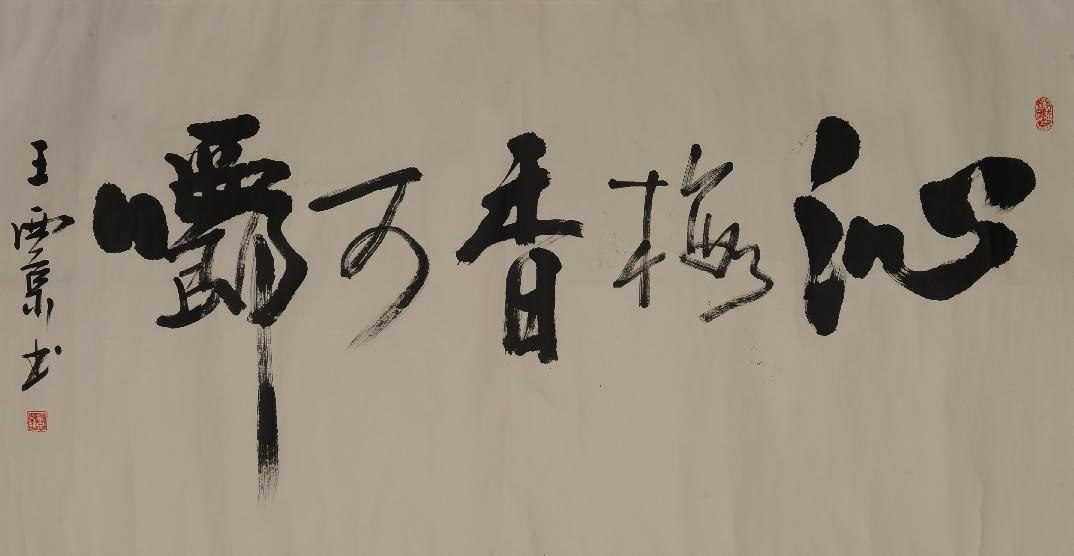 沁梅香可嚼
王雲京书